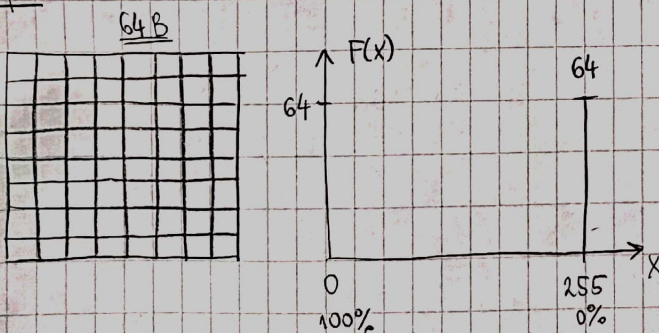 64 B
F(x)
64
64
0
255
X
100%
0%